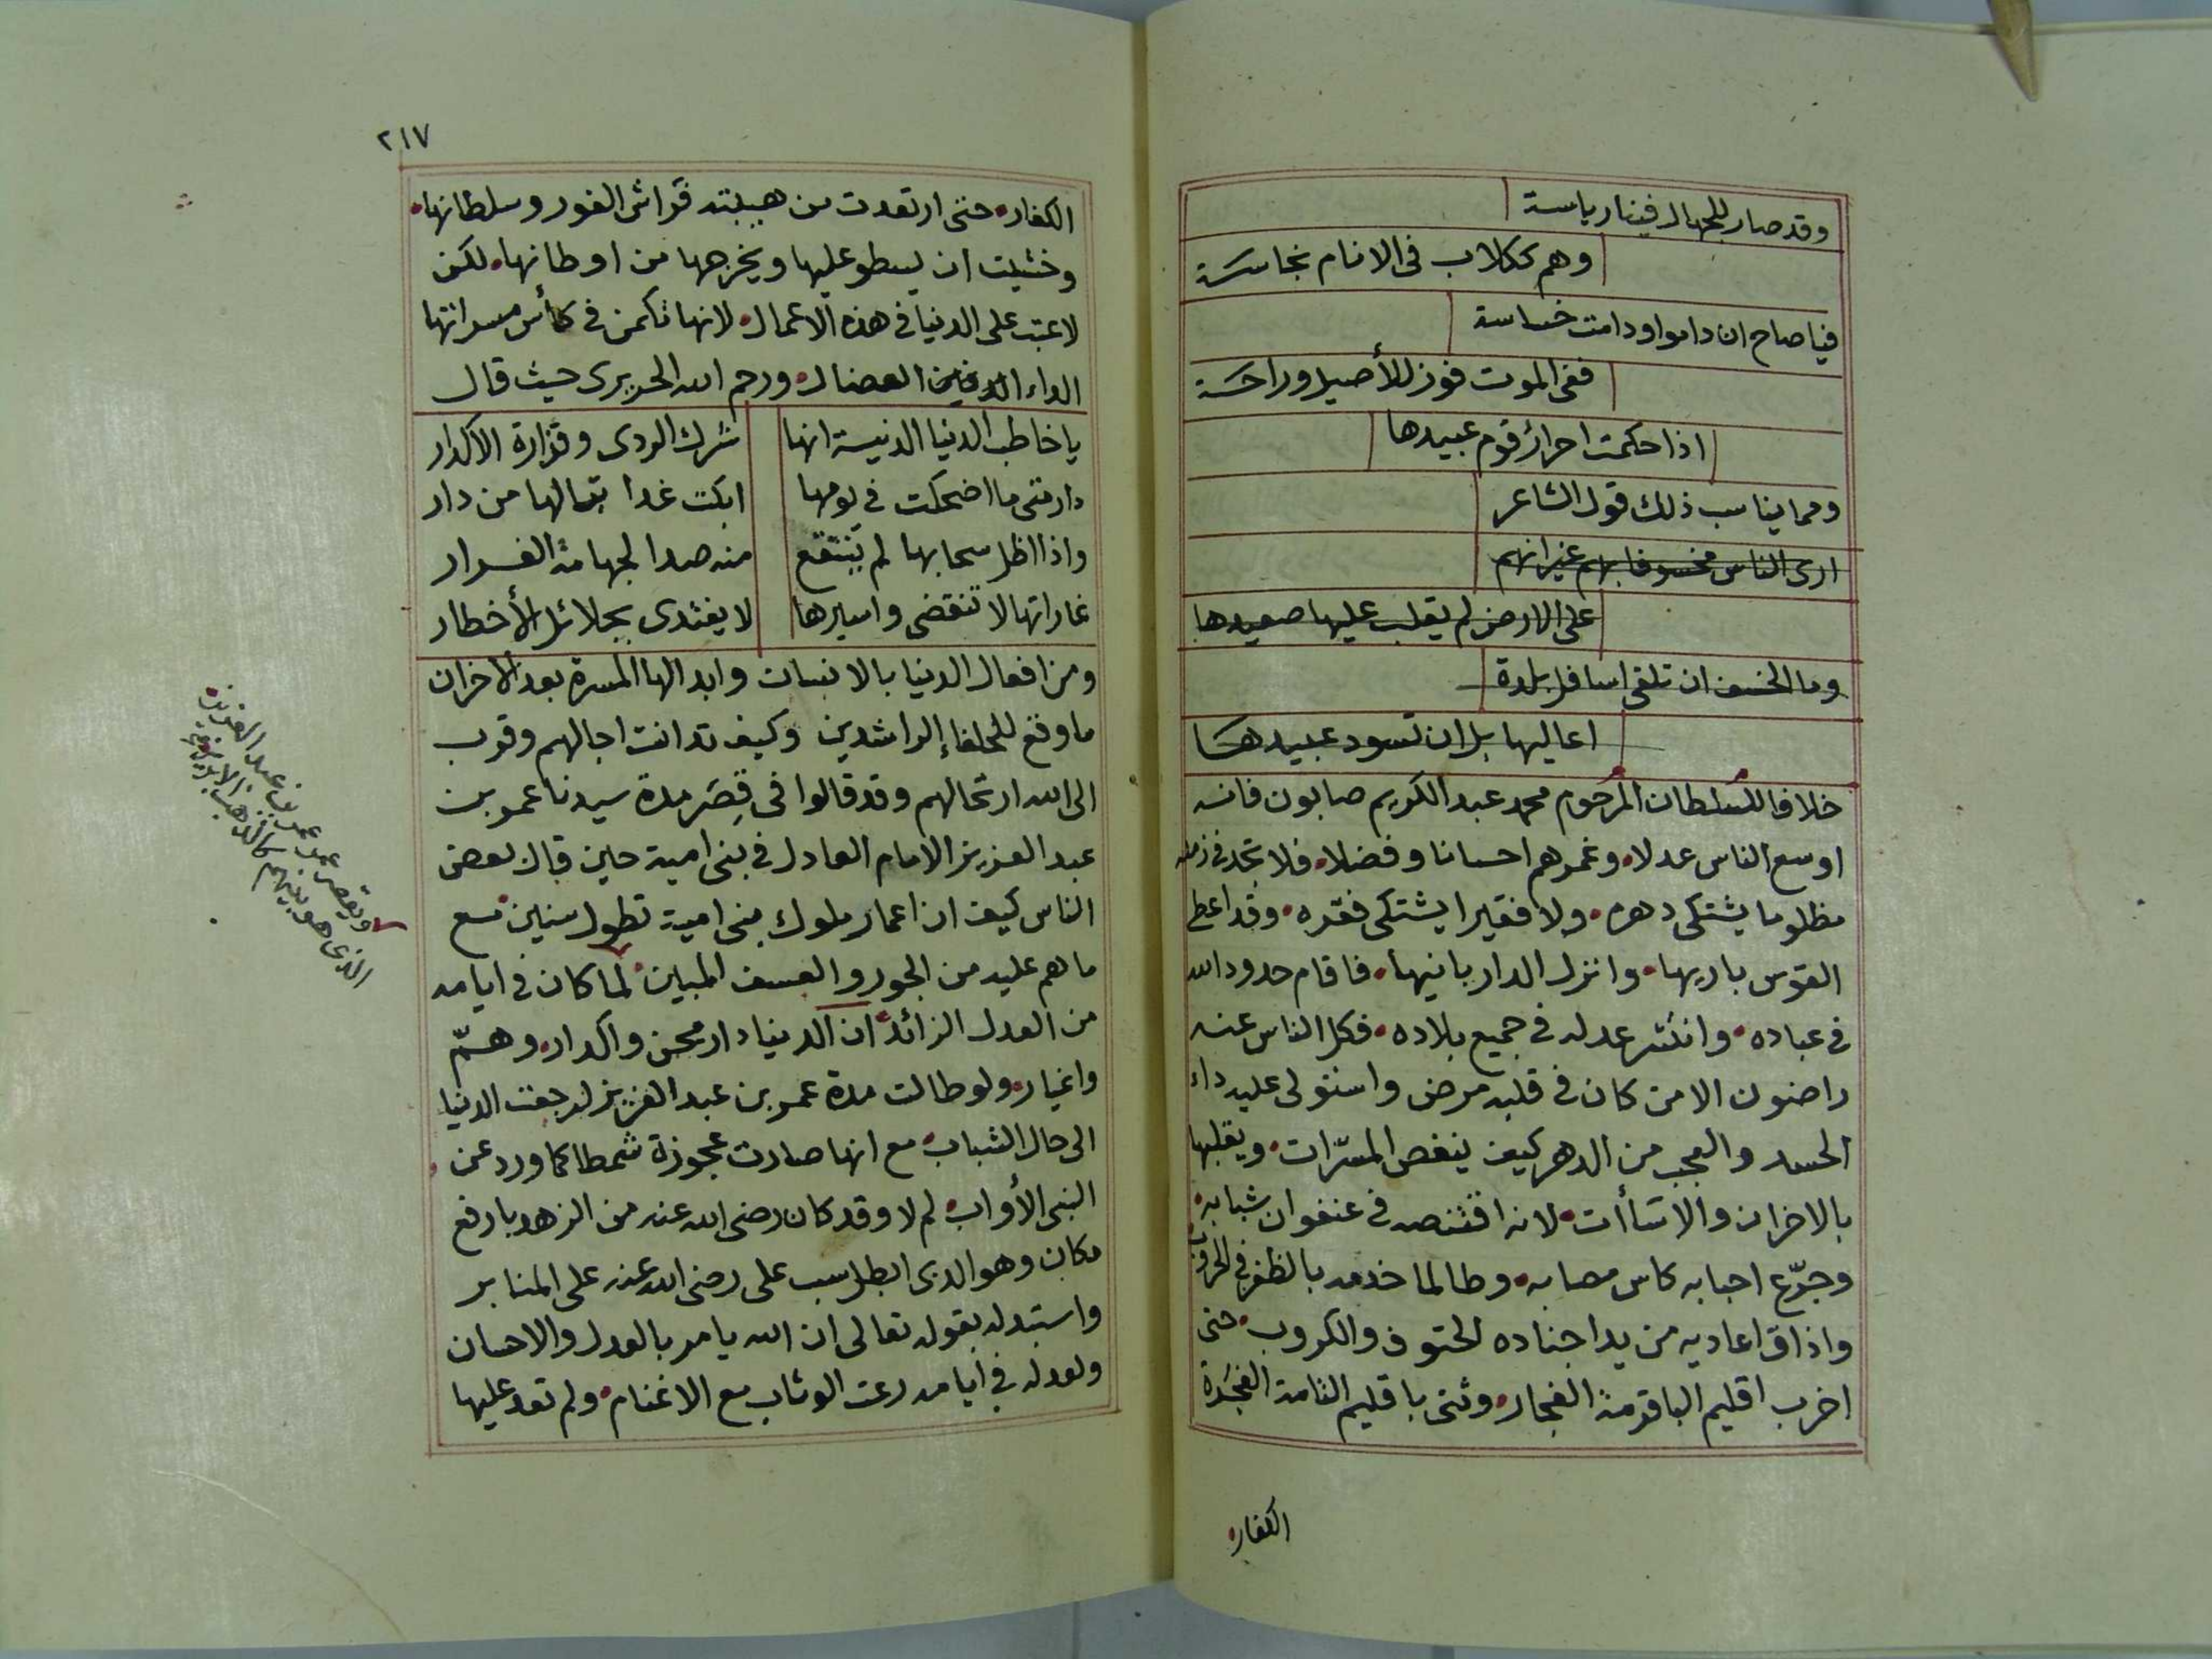 وقد صار للجهال فينا رياسة
وهم ككلاب في الانام نجاسة
فيا صاح ان داموا ودامت خساسة
ففي الموت فوز للأصيل وراحة
اذا حكمت احرار قوم عبيدها
ومما يناسب ذلك قول الشاعر
ارى الناس مخسوفا بهم غير انهم
على الارض لم يقلب عليها صعيدها
وما الخسف ان تلقى اسافل بلدة
اعاليها بل ان تسود عبيدها
خلافا للسلطان المرحوم محمد عبد الكريم صابون فانه
اوسع الناس عدلا، وغمرهم احسانا وفضلا، فلا تجد في زمنه
مظلوما يشتكي دهره، ولا فقيرا يشتكي فقره، وقد اعطى
القوس باريها، وانزل الدار بانيها، فاقام حدود الله
في عباده، وانتشر عدله في جميع بلاده، فكل الناس عنه
راضون الا من كان في قلبه مرض واستولى عليه داء
الحسد والعجب من الدهر كيف ينغص المسرّات، ويقلبها
بالاحزان والاسآأت، لانه اقتنصه في عنفوان شبابه
وجرّع احبابه كاس مصابه، وطالما خدمه بالظفر في الحروب
واذاق اعاديه من يد اجناده الحتوف والكروب، حتى
اخرب اقليم الباقرمة الفجار، وثنى باقليم التامة الفجرة
الكفار،
٢١٧
الكفار، حتى ارتعدت من هيبته قواش الفور وسلطانها،
وخشيت ان يسطو عليها ويخرجها من اوطانها، لكن
لا عتب على الدنيا في هذه الاعمال، لانها تكمن في كأس مسراتها
الداء الدفين العضال، ورحم الله الحريرى حيث قال
يا خاطب الدنيا الدنية انها شرك الردى وقرارة الاكدار
دار متى ما اضحكت في يومها ابكت غدا تبا لها من دار
واذا اظل سحابها لم ينتقع منه صدا لجهامة الغرار
غاراتها لا تنقضي واسيرها لا يفتدى بجلائل الأخطار
ومن افعال الدنيا بالانسان وابدالها المسرة بعد الاحزان
ما وقع للخلفاء الراشدين وكيف تدانت اجالهم وقرب
الى الله ارتحالهم وقد قالوا في قِصَر مدة سيدنا عمر بن
عبد العزيز الامام العادل في بني امية حين قال بعض
الناس كيف ان اعمار ملوك بني امية تطول سنين مع
ما هم عليه من الجور والعسف المبين، لما كان في ايامه
من العدل الزائد ان الدنيا دار محن واكدار، وهمّ
واغيار، ولو طالت مدة عمر بن عبد العزيز لرجعت الدنيا
الى حال الشباب، مع انها صارت عجوزة شمطا كما ورد عن
النبي الأواب، لم لا وقد كان رضي الله عنه من الزهد بارفع
مكان وهو الذى ابطل سب على رضي الله عنه على المنابر
واستبدله بقوله تعالى ان الله يامر بالعدل والاحسان
ولعدله في ايامه رعت الذئاب مع الاغنام، ولم تعد عليها
ويقصر عمر عمر بن عبد العزيز
الذى هو بينهم كالذهب الابريز